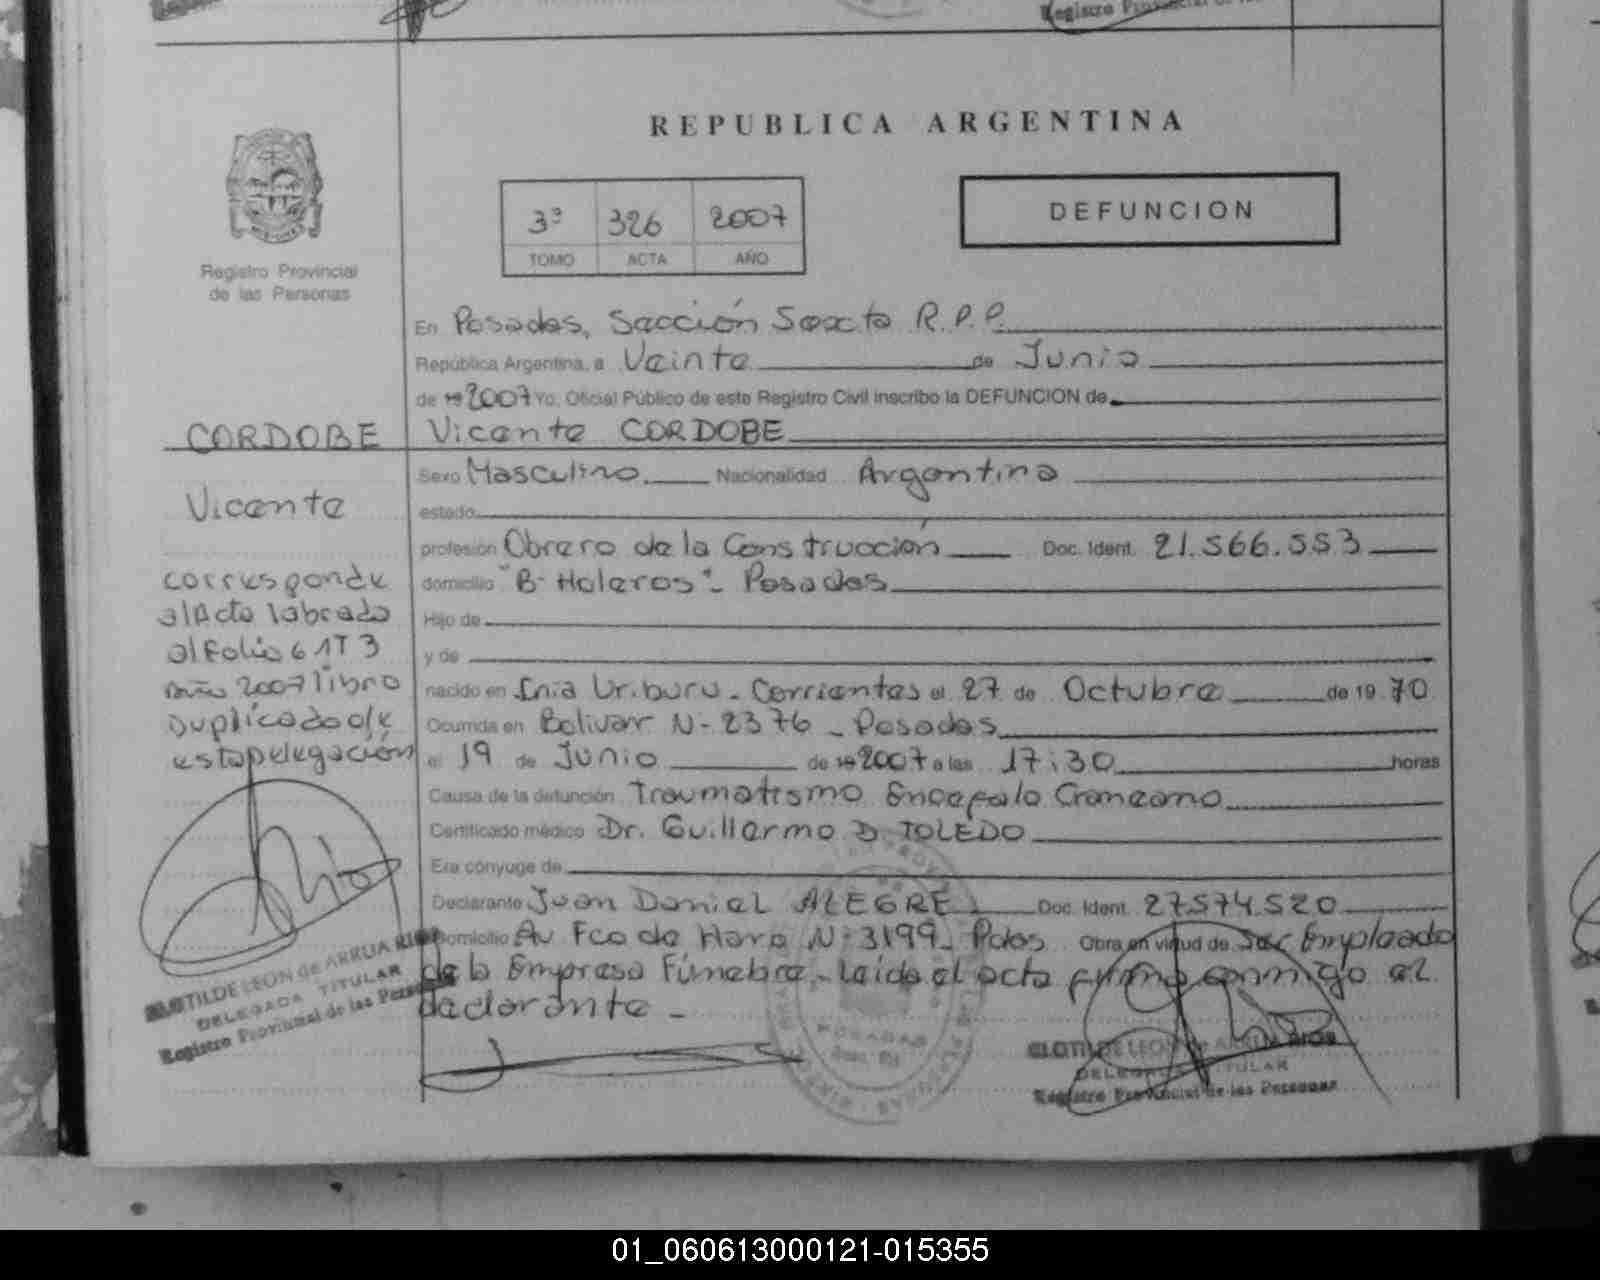 REPUBLICA ARGENTINA
3ª 326 2007
TOMO ACTA AÑO
DEFUNCION
Registro Provincial
de las Personas
En Posadas, Sección Sexta R.P.P.
República Argentina, a Veinte de Junio
de 19 2007 Yo, Oficial Público de este Registro Civil inscribo la DEFUNCION de
CORDOBE
Vicente CORDOBE
Sexo Masculino. Nacionalidad Argentina
Vicente
estado
profesión Obrero de la Construcción Doc. Ident. 21.566.553
corresponde
al Acta labrada
al Folio 61 T 3
año 2007 libro
Duplicado d/e
esta Delegación
domicilio "B- Holeros"- Posadas
Hijo de
y de
nacido en Cnia Uriburu - Corrientes el 27 de Octubre de 19 70
Ocurrida en Bolivar N- 2376 - Posadas
el 19 de Junio de 19 2007 a las 17:30 horas
Causa de la defunción Traumatismo Encefalo Craneano
Certificado médico Dr. Guillermo D. TOLEDO
Era cónyuge de
Declarante Juan Daniel ALEGRE Doc. Ident. 27574.520
Domicilio Av Fco de Haro N- 3199 - Pdas Obra en virtud de ser Empleado
de la Empresa Fúnebre - Leída el acta firma conmigo el
declarante -
CLOTILDE LEON de ARRUA RIOS
DELEGADA TITULAR
Registro Provincial de las Personas
POSADAS
CLOTILDE LEON de ARRUA RIOS
DELEGADA TITULAR
Registro Provincial de las Personas
Registro Provincial de las
01_060613000121-015355